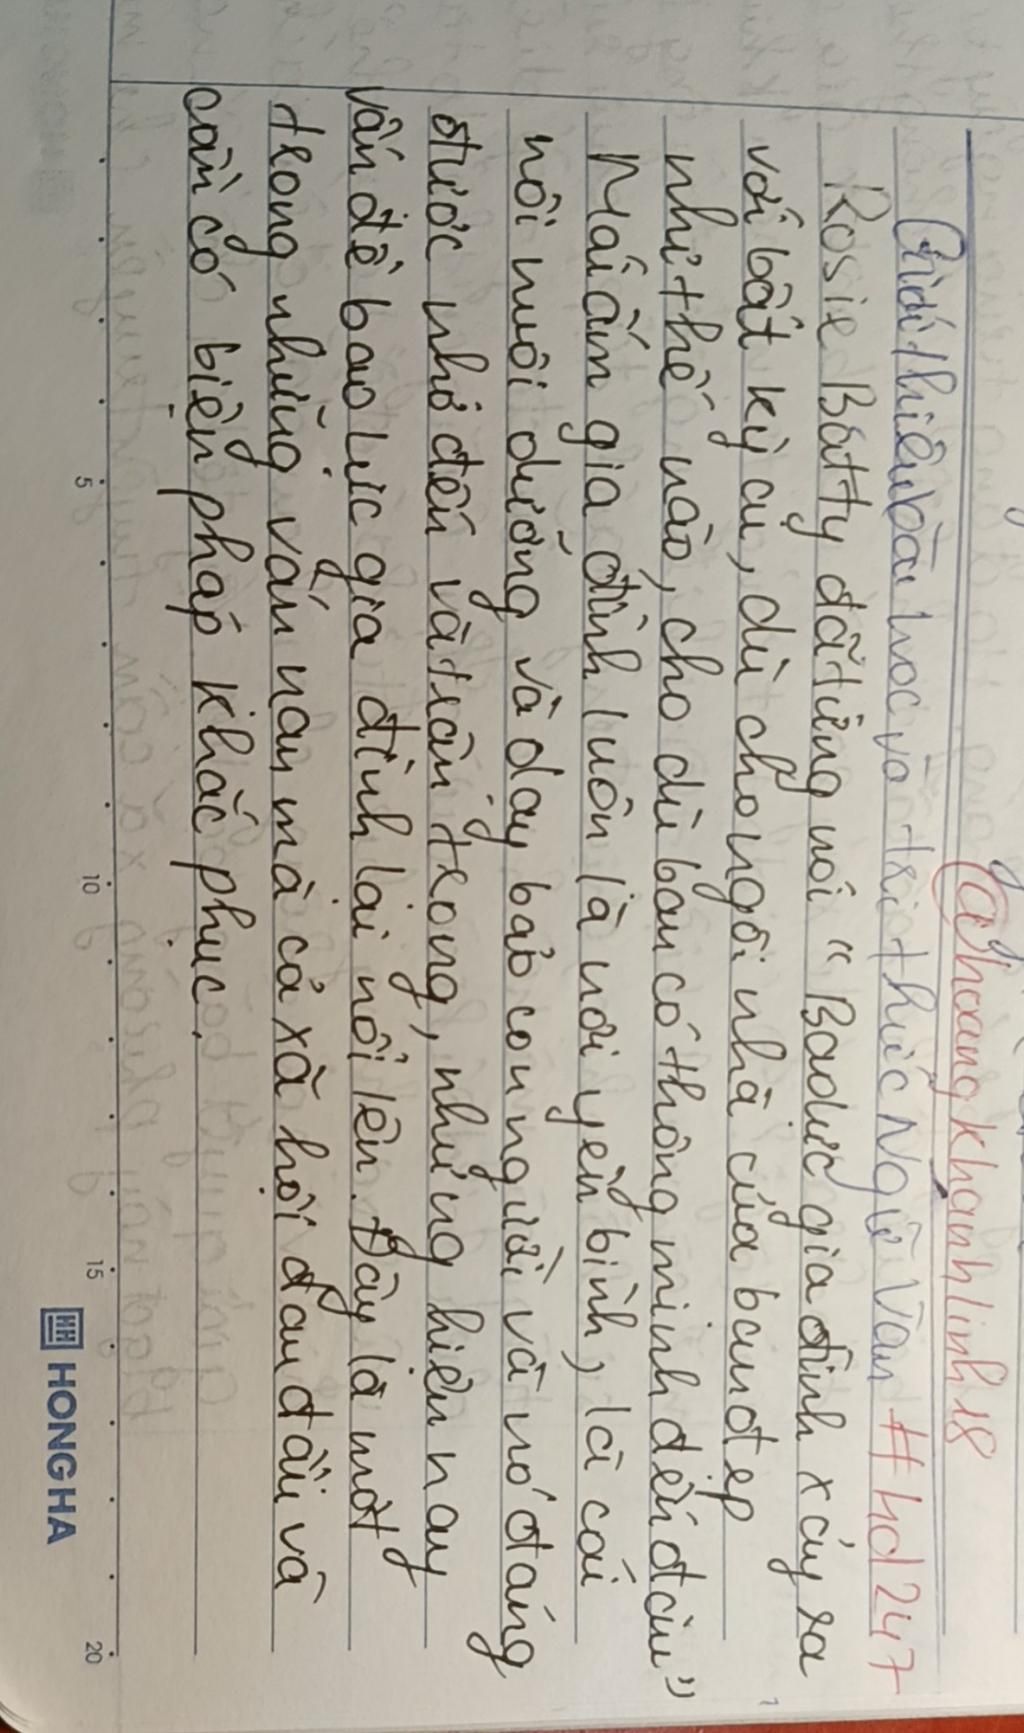 @hoangkhanhlinh18
Giới thiệu bài học và tri thức Ngữ Văn #hd247
Rosie Batty đã từng nói "Bạo lực gia đình xảy ra
với bất kỳ ai, dù cho ngôi nhà của bạn đẹp
như thế nào, cho dù bạn có thông minh đến đâu"
Mái ấm gia đình luôn là nơi yên bình, là cái
nôi nuôi dưỡng và dạy bảo con người và nó đáng
được nhớ đến và trân trọng, nhưng hiện nay
vấn đề bạo lực gia đình lại nổi lên. Đây là một
trong những vấn nạn mà cả xã hội đau đầu và
cần có biện pháp khắc phục.
5 10 15 20
HONG HA